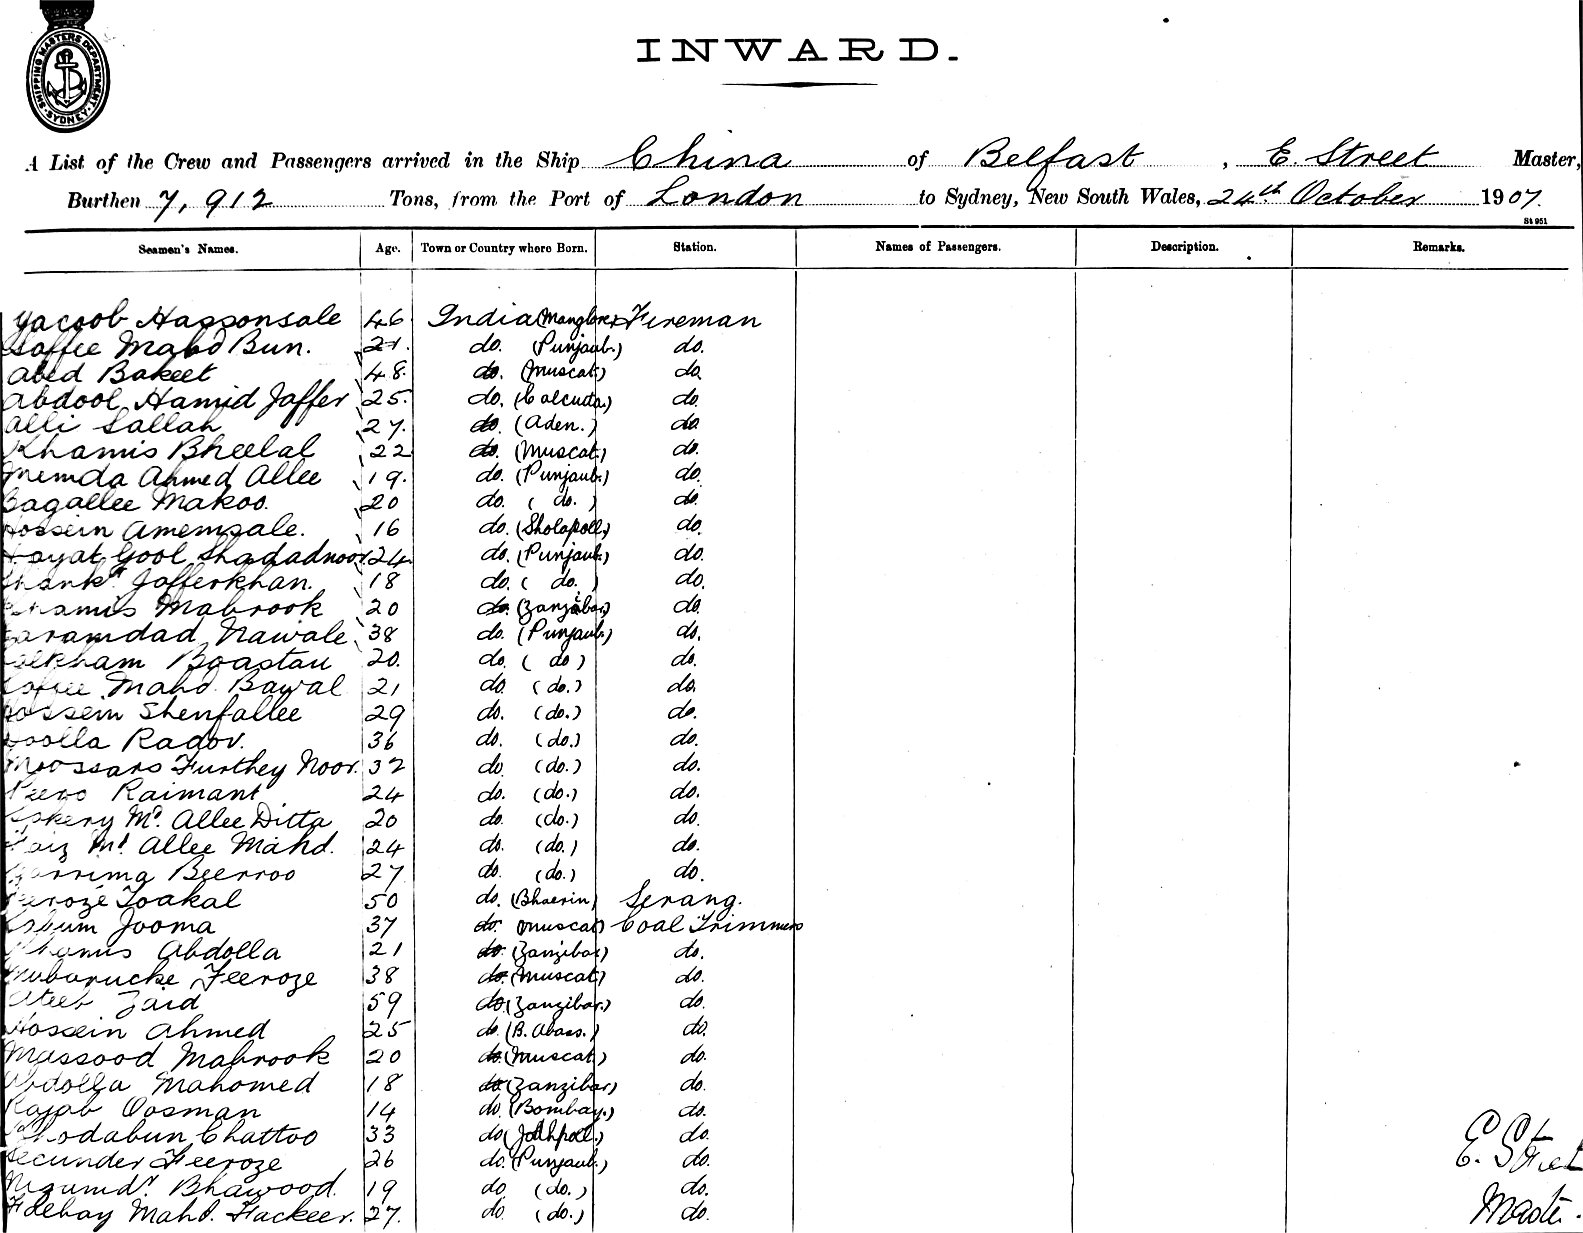 SHIPPING MASTERS DEPARTMENT SYDNEY
INWARD.
A List of the Crew and Passengers arrived in the Ship China of Belfast, E. Street Master,
Burthen 7,912 Tons, from the Port of London to Sydney, New South Wales, 24th October 1907.
St 951
Seamen's Names. Age. Town or Country where Born. Station. Names of Passengers. Description. Remarks.
Yacoob Hassonsale 46 India (Manglore) Fireman
Goffee Mahd Bun. 21. do. (Punjaub.) do.
Abed Bakeet 48. do. (Muscat) do.
Abdool Hamid Jaffer 25. do. (Calcutta.) do.
Alli Sallah 27. do. (Aden.) do.
Khamis Bheelal 22 do. (Muscat) do.
Memda Ahmed Allee 19. do. (Punjaub.) do.
Bagallee Makoo. 20 do. ( do. ) do.
Hossein Amemsale. 16 do. (Sholapoll) do.
Hayat Gool Shadadnoor 24 do. (Punjaub.) do.
Jafferkhan. 18 do. ( do. ) do.
Khamis Mabrook 20 do. (Zanzibar) do.
Karamdad Nawale 38 do. (Punjaub.) do.
Boastau 20. do. ( do ) do.
Mahd. Bawal 21 do. (do.) do.
Hossein Shenfallee 29 do. (do.) do.
Ragov. 36 do. (do.) do.
Moossars Furthey Noor. 32 do. (do.) do.
Raimant 24 do. (do.) do.
Md. Allee Ditta 20 do. (do.) do.
Faiz Md. Allee Mahd. 24 do. (do.) do.
Beerroo 27 do. (do.) do.
Feroze Toakal 50 do. (Bhaerin) Serang.
Jooma 37 do. Muscat) Coal Trimmers
Khamis Abdolla 21 do. (Zanzibar) do.
Mubarucke Feeroze 38 do. (Muscat) do.
Ateeb Zaid 59 do. (Zanzibar.) do.
Hossein Ahmed 25 do. (B. Abass.) do.
Mussood Mabrook 20 do. (Muscat) do.
Abdolla Mahomed 18 do. (Zanzibar) do.
Rajab Oosman 14 do. (Bombay.) do.
Khodabun Chattoo 33 do. do.
Secunder Feeroze 26 do. (Punjaub.) do.
Bhawood. 19 do (do.) do.
Mahd. Fackeer. 27. do (do.) do.
E. Street
Master.